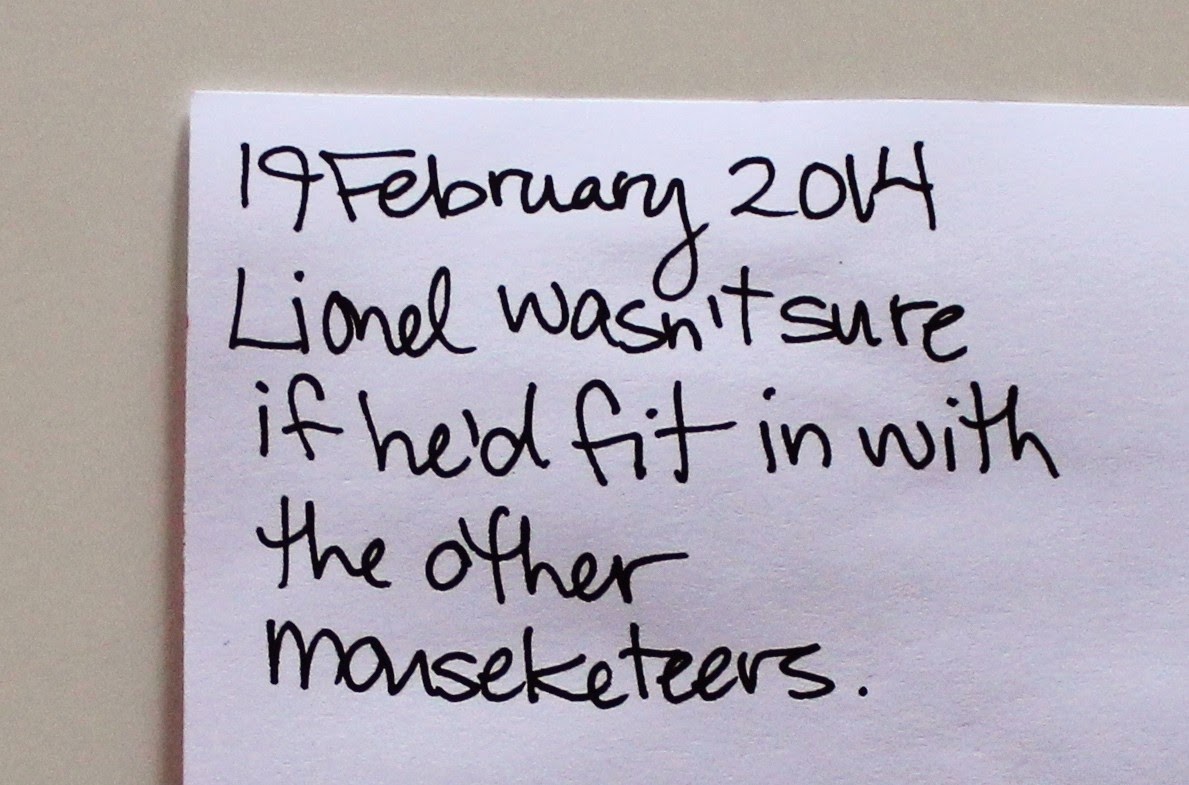 19 February 2014
Lionel wasn't sure
if he'd fit in with
the other
mouseketeers.